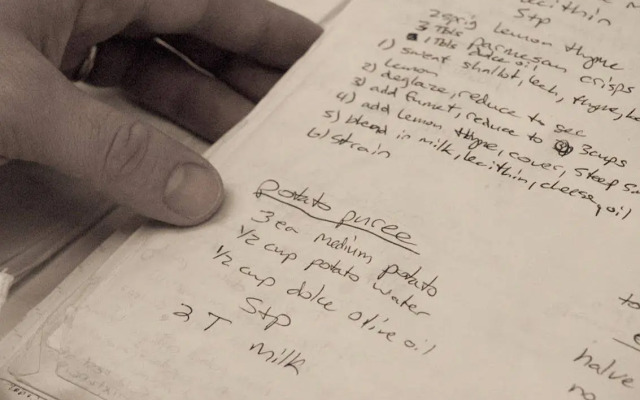 lecithin
Stp
2 sprig lemon thyme
3 Tbls parmesan crisps
1 Tbls oil
1) sweat shallot, leek, thyme,
lemon
2) deglaze, reduce to sec
3) add fumet, reduce to 3 cups
4) add lemon thyme, cover, steep
5) blend in milk, lecithin, cheese, oil
6) strain
potato puree
3 ea medium potato
1/2 cup potato water
1/2 cup dolce olive oil
Stp
2 T milk
to
halve